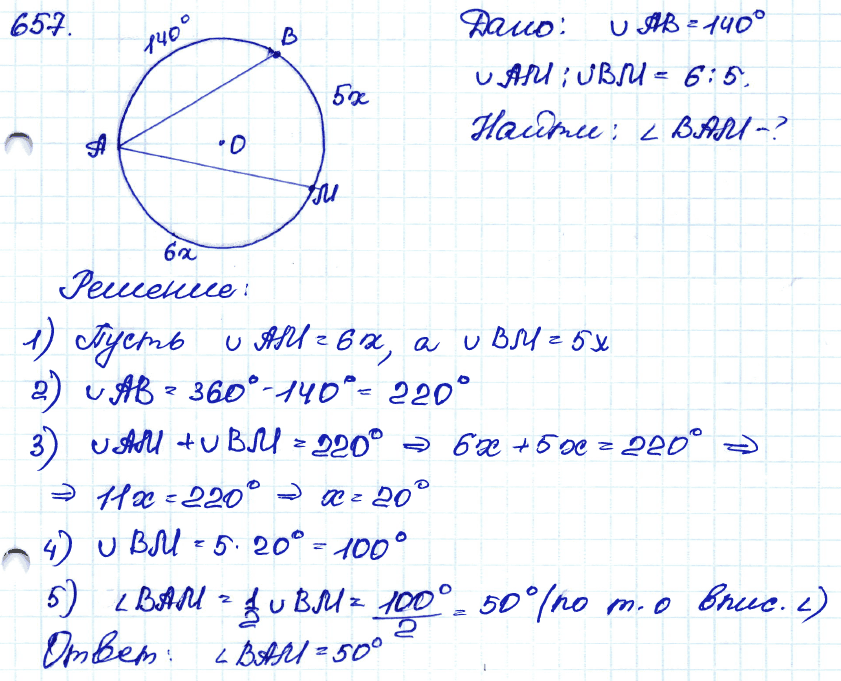 657.
140°
B
5x
A
O
M
6x
Дано: ∪ AB = 140°
∪ AM : ∪ BM = 6 : 5.
Найти: ∠ BAM - ?
Решение:
1) Пусть ∪ AM = 6x, а ∪ BM = 5x
2) ∪ AB = 360° - 140° = 220°
3) ∪ AM + ∪ BM = 220° ⇒ 6x + 5x = 220° ⇒
⇒ 11x = 220° ⇒ x = 20°
4) ∪ BM = 5 · 20° = 100°
5) ∠ BAM = 1/2 ∪ BM = 100°/2 = 50° (по т. о впис. ∠)
Ответ: ∠ BAM = 50°